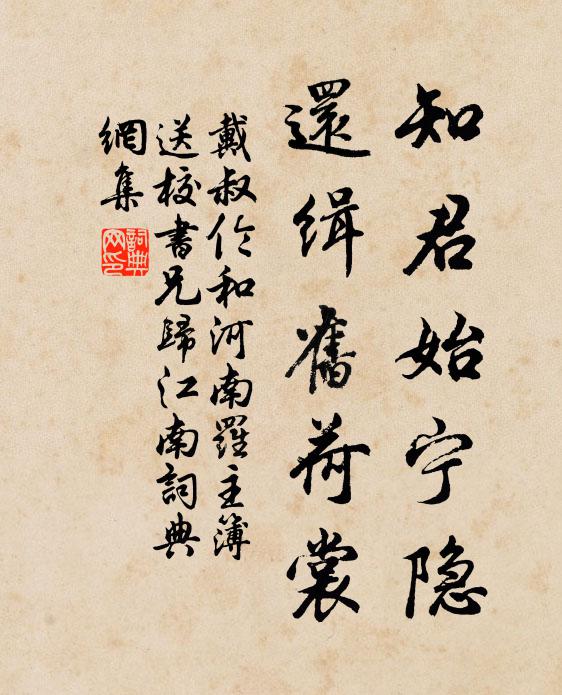 知君始宁隐
還緝舊荷裳
戴叔伦和河南羅主簿
送校書兄歸江南詞典
網集
詞典网印